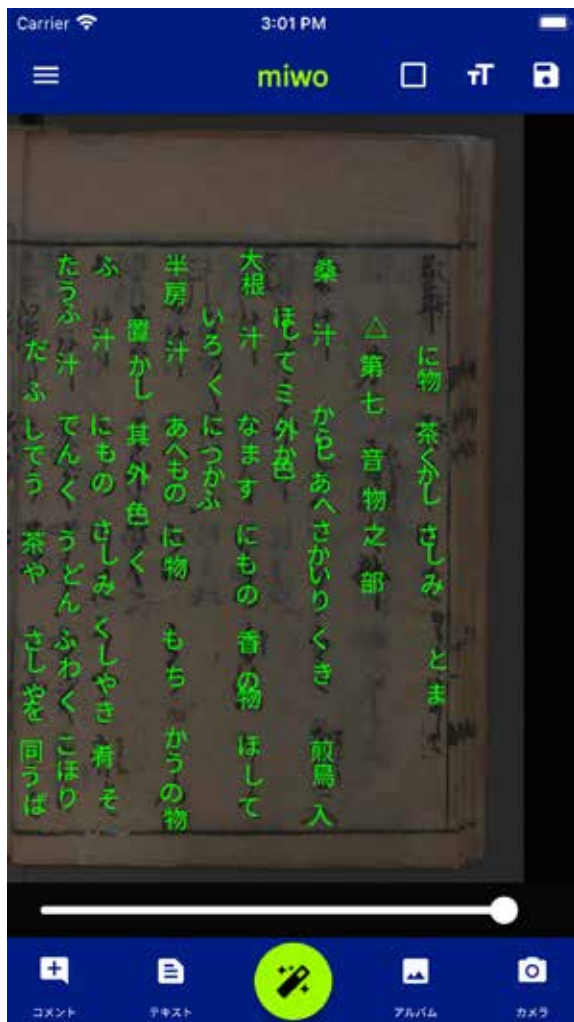 Carrier 3:01 PM
miwo
TT
に物 茶くかし さしみ とま
△第七 音物之部
桑汁 あへ さかいり くき 煎鳥 入
ほして ミ 外か色
大根汁 なます にもの 香の物 ほして
いろく につかふ
半房汁 あへもの に物 もち かうの物
かし 其外色く
ふ汁 にもの さしみ くしやき 肴 そ
たうふ汁 でんく うどん ふわく こほり
だふ してう 茶や さしやを 同うば
コメント
テキスト
アルバム
カメラ